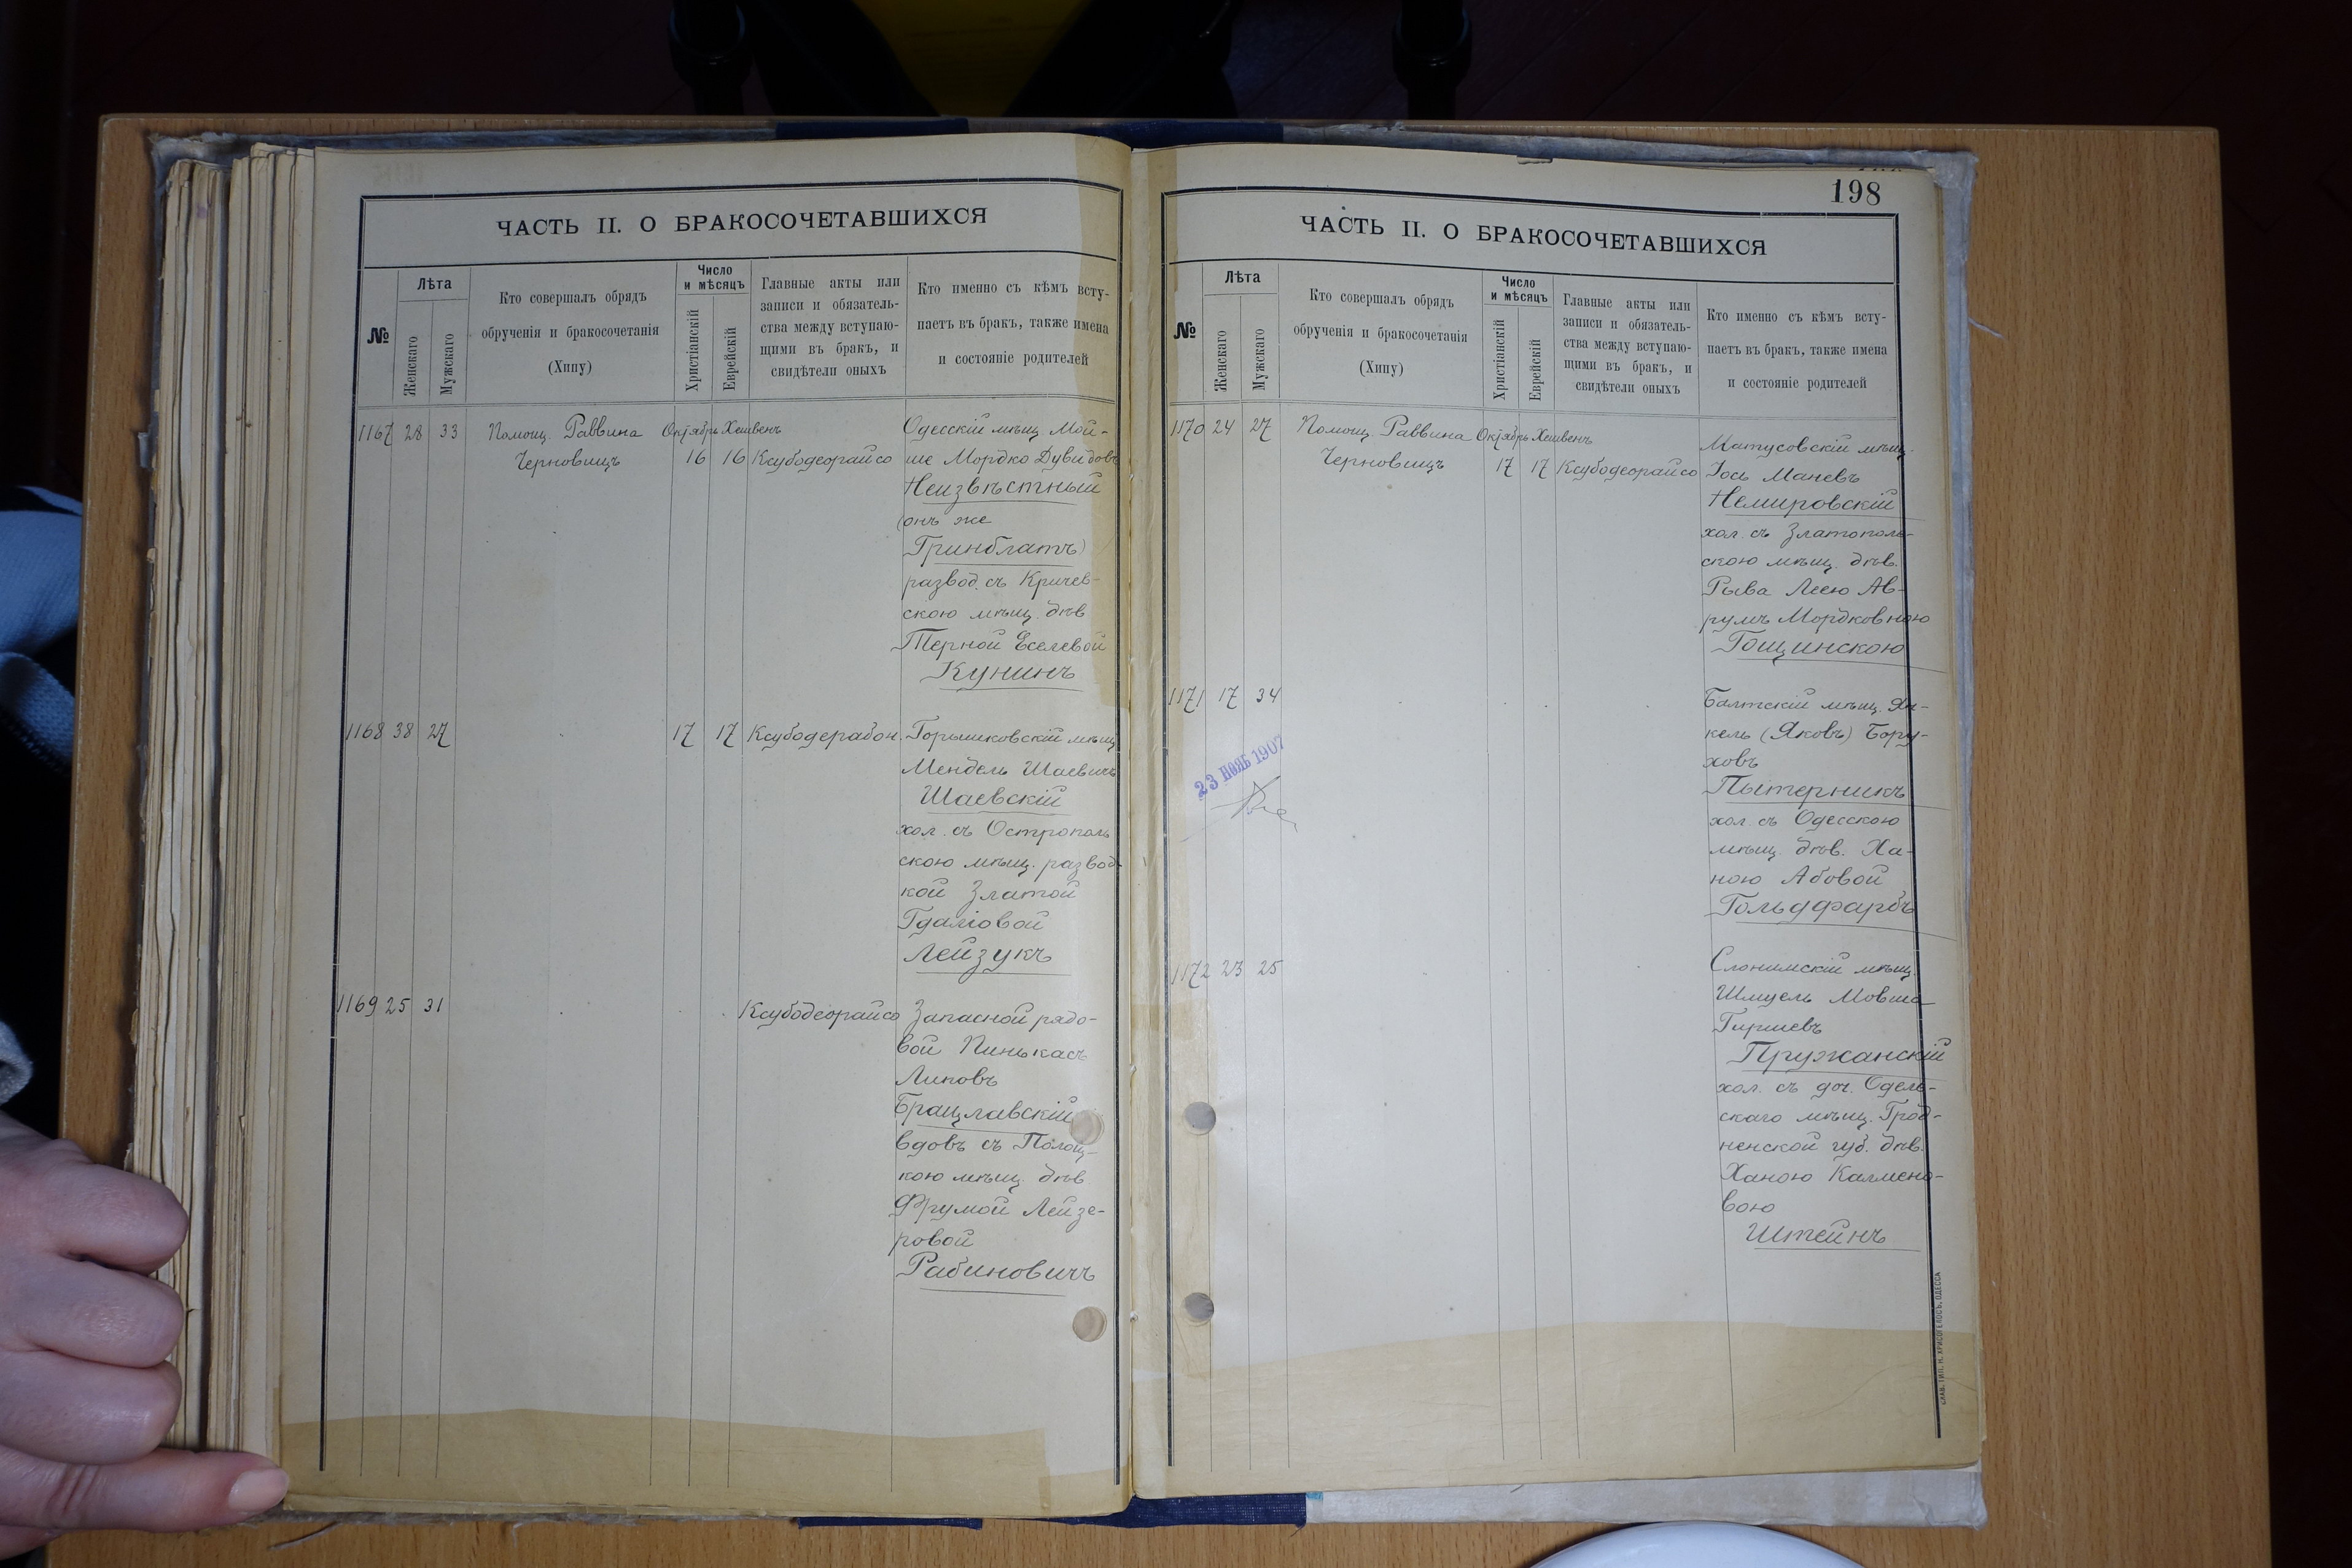 ЧАСТЬ II. О БРАКОСОЧЕТАВШИХСЯ
№
Лѣта
Женскаго
Мужскаго
Кто совершалъ обрядъ
обрученія и бракосочетанія
(Хипу)
Число
и мѣсяцъ
Христіанскій
Еврейскій
Главные акты или
записи и обязатель-
ства между вступаю-
щими въ бракъ, и
свидѣтели оныхъ
Кто именно съ кѣмъ всту-
паетъ въ бракъ, также имена
и состояніе родителей
1167 28 33 Помощ. Раввина Октябрь Хешвенъ
Черновицъ 16 16 Ксубодеорайсо
Одесскій мѣщ. Мой-
ше Мордко Дувидовъ
Неизвѣстный
(онъ же
Гринблатъ)
развод. съ Кричев-
скою мѣщ. дѣв
Терной Еселевой
Кунинъ
1168 38 27 17 17 Ксубодерабон. Горышковскій мѣщ
Мендель Шаевичъ
Шаевскій
хол. съ Острополь
скою мѣщ. развод-
кой Златой
Гдаліовой
Лейзукъ
1169 25 31 Ксубодеорайсо Запасной рядо-
вой Пинькасъ
Липовъ
Брацлавскій
вдовъ съ Полоц-
кою мѣщ. дѣв
Фрумой Лейзе-
ровой
Рабиновичъ
198
ЧАСТЬ II. О БРАКОСОЧЕТАВШИХСЯ
№
Лѣта
Женскаго
Мужскаго
Кто совершалъ обрядъ
обрученія и бракосочетанія
(Хипу)
Число
и мѣсяцъ
Христіанскій
Еврейскій
Главные акты или
записи и обязатель-
ства между вступаю-
щими въ бракъ, и
свидѣтели оныхъ
Кто именно съ кѣмъ всту-
паетъ въ бракъ, также имена
и состояніе родителей
1170 24 27 Помощ. Раввина Октябрь Хешвенъ
Черновицъ 17 17 Ксубодеорайсо
Матусовскій мѣщ.
Іось Маневъ
Немировскій
хол. съ Златополь-
скою мѣщ. дѣв.
Рыва Леею Ав-
румъ Мордковною
Гощинскою
1171 17 34 Балтскій мѣщ. Ян-
кель (Яковъ) Бору-
ховъ
Пытерникъ
хол. съ Одесскою
мѣщ. дѣв. Ха-
ною Абовой
Гольдфарбъ
23 НОЯБ 1907
1172 23 25 Слонимскій мѣщ.
Шмуель Мовша
Гиршевъ
Пружанскій
хол. съ доч. Одель-
скаго мѣщ. Грод-
ненской губ. дѣв.
Ханою Калмено-
вою
Штейнъ
СЛАВ. ТИП. Н. ХРИСОГЕЛОСЪ, ОДЕССА